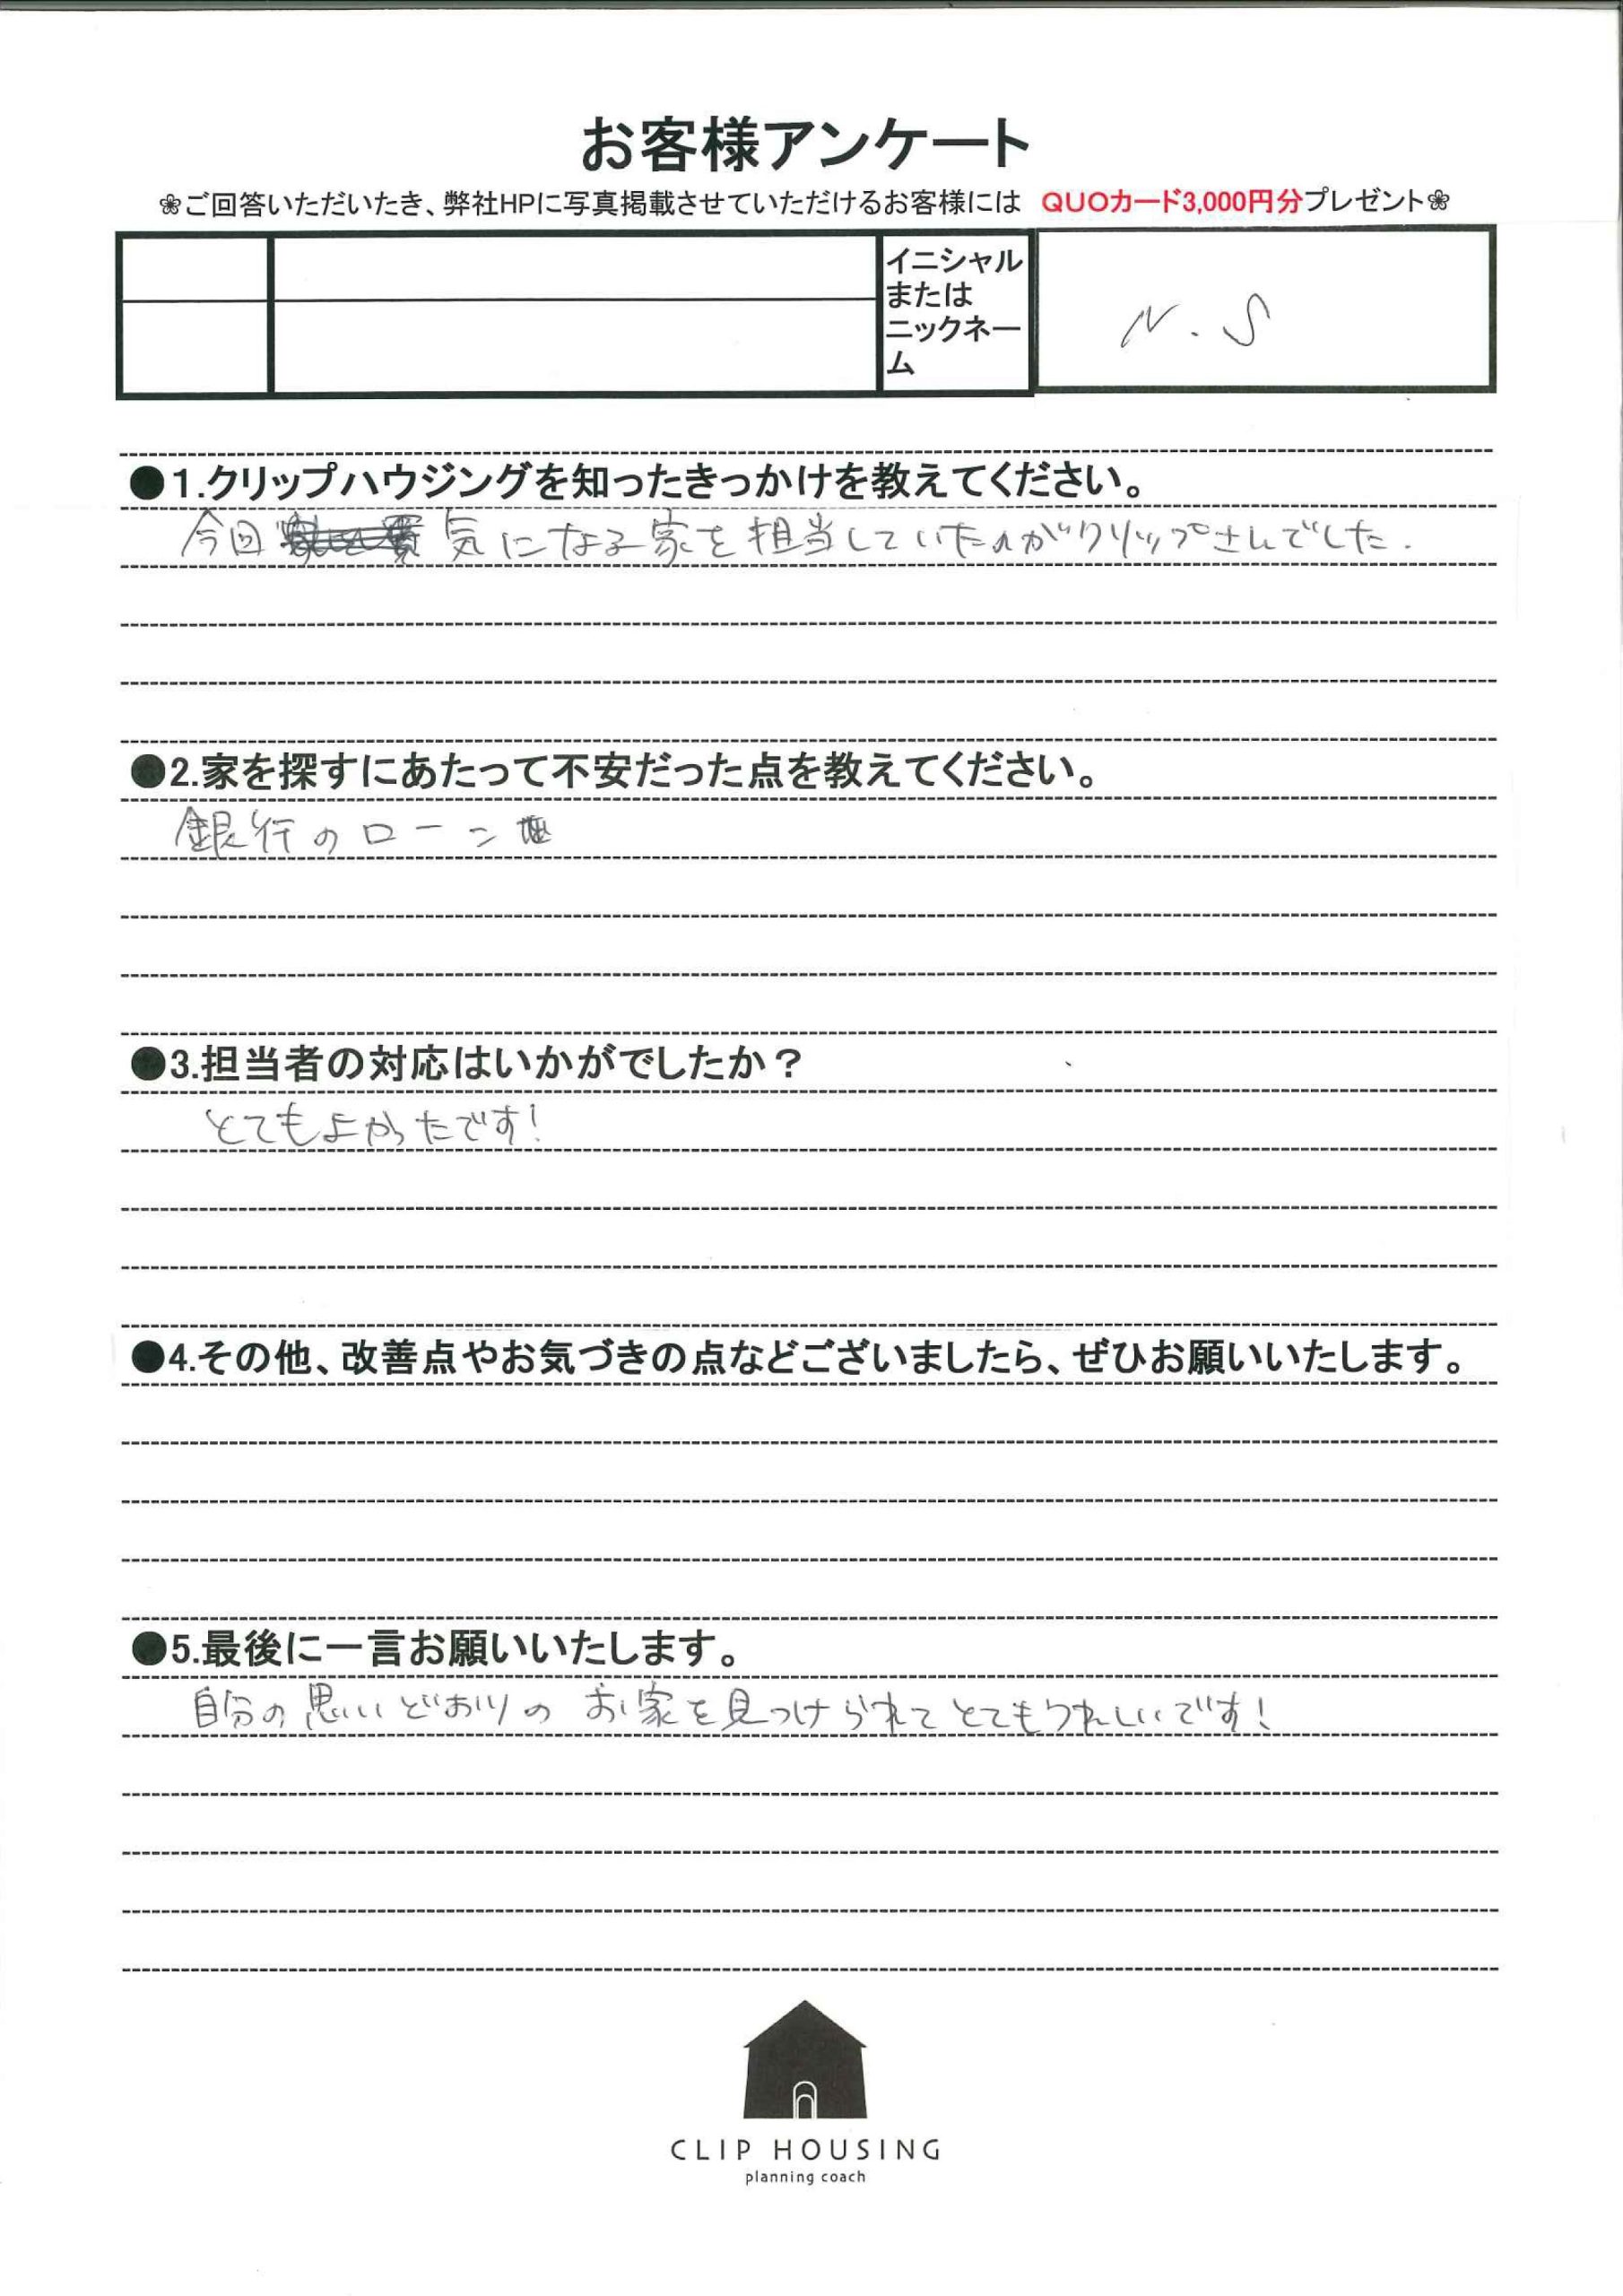 お客様アンケート
❀ご回答いただいたき、弊社HPに写真掲載させていただけるお客様には QUOカード3,000円分プレゼント❀
イニシャル
または
ニックネー
ム
N.S
●1.クリップハウジングを知ったきっかけを教えてください。
今回 気になる家を担当していたのがクリップさんでした.
●2.家を探すにあたって不安だった点を教えてください。
銀行のローン
●3.担当者の対応はいかがでしたか？
とてもよかったです!
●4.その他、改善点やお気づきの点などございましたら、ぜひお願いいたします。
●5.最後に一言お願いいたします。
自分の思いどおりの お家を見つけられて とてもうれしいです!
CLIP HOUSING
planning coach